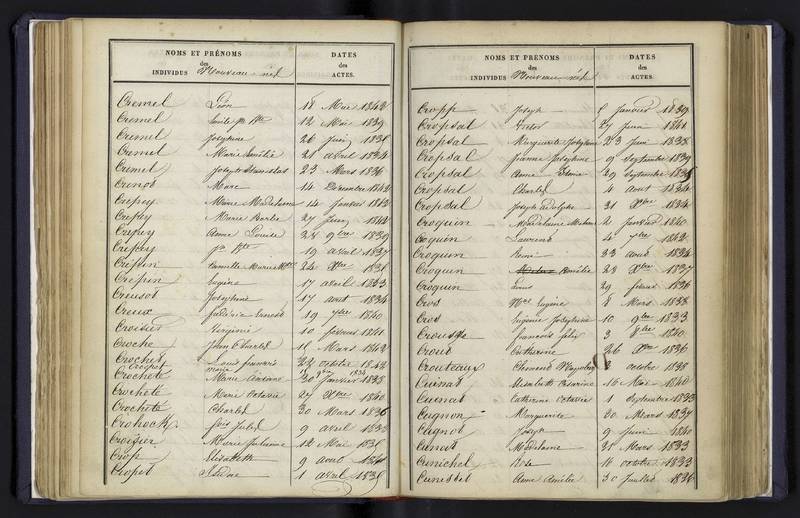 NOMS ET PRÉNOMS
des
INDIVIDUS Nouveau-nés
DATES
des
ACTES.
Cremel Léon 18 Mai 1842
Cremel Emile Jn Bte 12 Mai 1839
Cremel Joséphine 26 Juin 1838
Cremel Marie Amélie 21 avril 1834
Cremel Joseph Stanislas 23 Mars 1836
Marc 14 Décembre 1842
Crepey Marie Madelaine 14 Janvier 1842
Crepey Marie Barbe 27 Juin 1842
Crepey Anne Louise 28 9bre 1839
Crepey Jn Bte 19 avril 1837
Crepin Camille Marie 24 Xbre 1838
Crepin Eugène 17 avril 1833
Creusot Joséphine 17 aout 1834
Creux Frédéric Ernest 19 7bre 1840
Croisier Virginie 10 février 1841
Croche Jean Charles 11 Mars 1842
Crochet Louis François 22 octobre 1842
Crochet Marie 9bre 1834
Crocheté Marie Antoine 30 Janvier 1838
Crocheté Marie Octavie 27 Xbre 1840
Crocheté Charles 30 Mars 1836
Fois Jules 9 avril 1833
Croisier Marie Julienne 12 Mai 1838
Crop Elisabeth 9 aout
Cropet 1 avril 1838
NOMS ET PRÉNOMS
des
INDIVIDUS Nouveau-nés
DATES
des
ACTES.
Cropp Joseph Janvier 1839
Cropsal Victor 27 Juin 1841
Cropsal Marguerite Joséphine 23 Juin 1838
Cropsal Jeanne Joséphine 9 Septembre 1839
Cropsal Anne 29 Septembre
Cropsal Charles 4 aout 1834
Cropsal Joseph adolphe 21 Xbre 1834
Croquin Madelaine 2 Janvier 1840
Coquin Laurent 4 7bre 1842
Croquin Remi 23 avril 1834
Croquin Amélie 28 Xbre 1837
Croquin Louis 29 février 1836
Cros Eugène 8 Mars 1838
Cros Eugénie Joséphine 10 9bre 1833
François Félix 3 8bre 1840
Crout Catherine 26 Xbre 1836
Crouteaux octobre 1838
Cuinat Elisabeth 16 Mai 1840
Cuinat Catherine Octavie 1 Septembre 1833
Cugnon Marguerite 20 Mars 1837
Cugnot Joseph 9 Juin 1840
Madelaine 31 Mars 1833
Cunichel Rose 18 octobre 1833
Anne Amélie 30 Juillet 1836